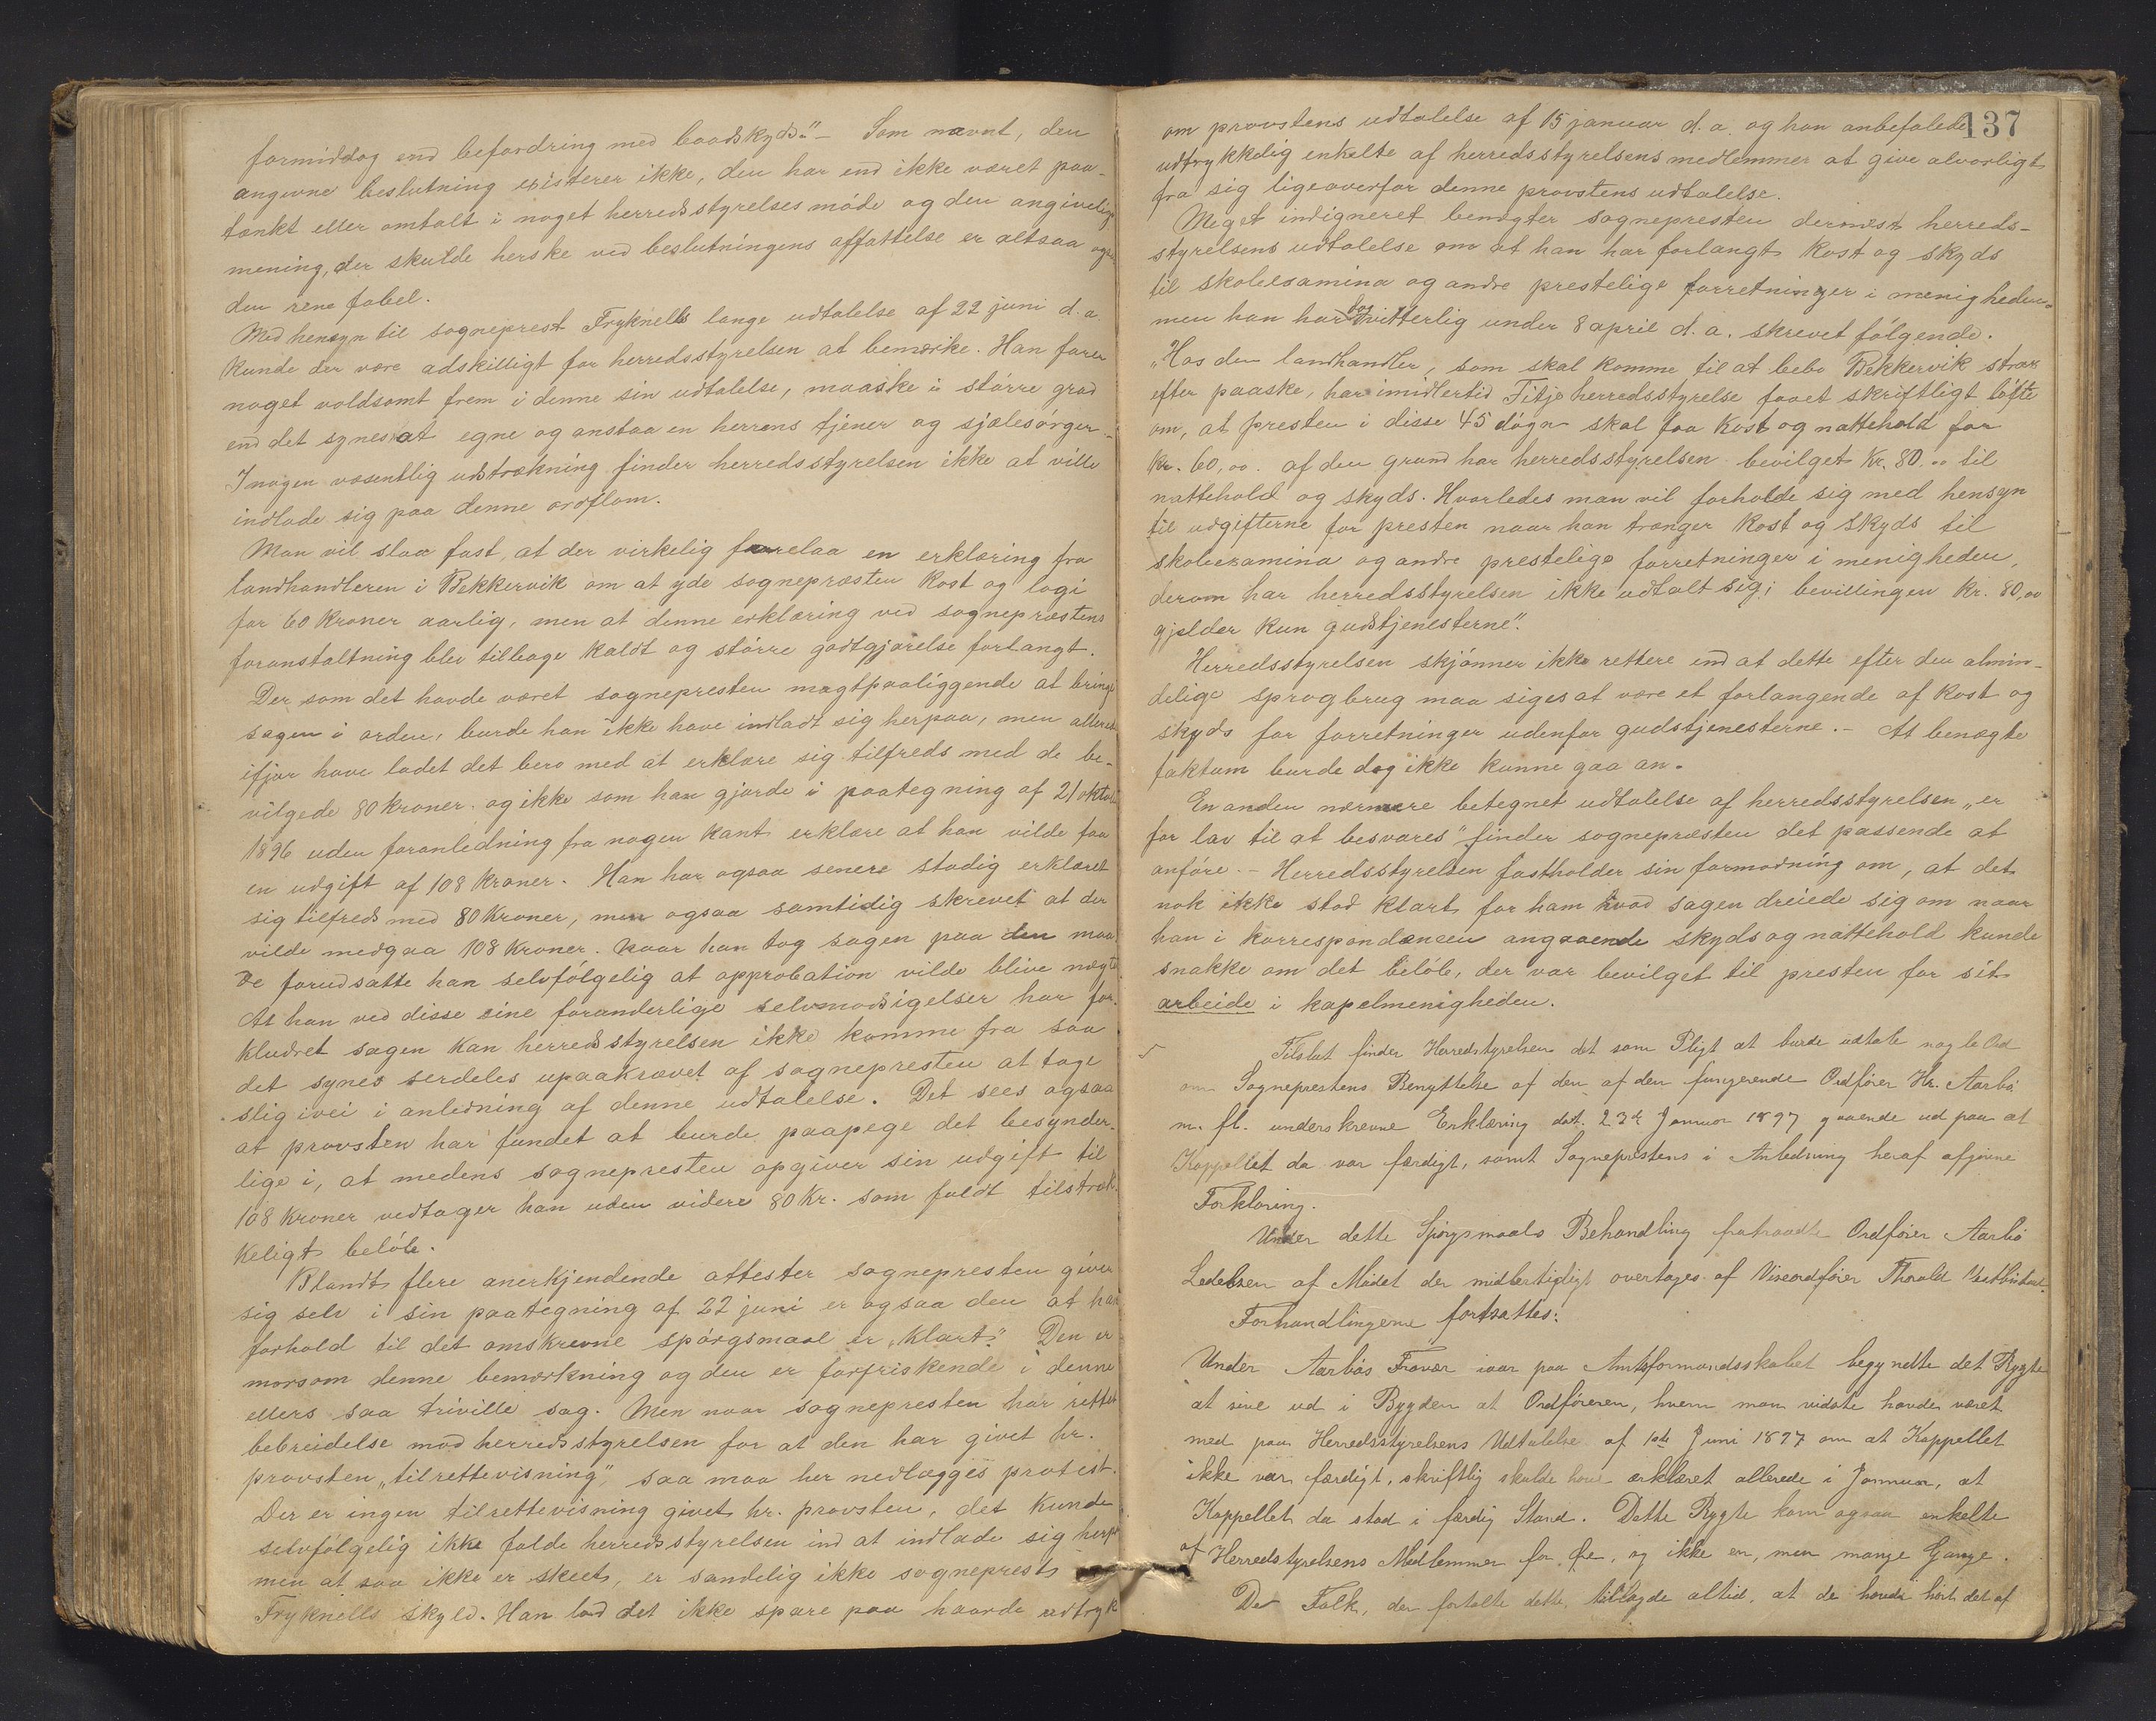 formiddag end befordring med baadskyds." — Som nævnt, den
angivne beslutning existerer ikke, den har end ikke været paa-
tænkt eller omtalt i noget herredsstyrelses møde og den angivelige
mening, der skulde herske ved beslutningens affattelse er altsaa ogsaa
den rene fabel.
Med hensyn til sogneprest Fryknells lange udtalelse af 22 juni d. a.
kunde der være adskilligt for herredsstyrelsen at bemærke. Han farer
noget voldsomt frem i denne sin udtalelse, maaske i større grad
end det synes at egne og anstaa en herrens tjener og sjælesørger.
I nogen væsentlig udstrækning finder herredsstyrelsen ikke at ville
indlade sig paa denne ordflom.
Man vil slaa fast, at der virkelig forelaa en erklæring fra
landhandleren i Bekkervik om at yde sognepræsten kost og logi
for 60 kroner aarlig, men at denne erklæring ved sognepræstens
foranstaltning blev tilbage kaldt og større godtgjørelse forlangt.
Der som det havde været sognepresten magtpaaliggende at bringe
sagen i orden, burde han ikke have indladt sig herpaa, men allerede
ifjor have ladet det bero med at erklære sig tilfreds med de be-
vilgede 80 kroner og ikke som han gjorde i paategning af 21 oktob
1896 uden foranledning fra nogen kant erklære at han vilde faa
en udgift af 108 kroner. Han har ogsaa senere stadig erklæret
sig tilfreds med 80 kroner, men ogsaa samtidig skrevet at der
vilde medgaa 108 kroner. Naar han tog sagen paa den maa-
de forudsatte han selvfølgelig at approbation vilde blive nægtet
At han ved disse sine foranderlige selvmodsigelser har for-
kludret sagen kan herredsstyrelsen ikke komme fra saa
det synes serdeles upaakrævet af sognepresten at tage
slig ivei i anledning af denne udtalelse. Det sees ogsaa
at provsten har fundet at burde paapege det besynder-
lige i, at medens sognepresten opgiver sin udgift til
108 kroner vedtager han uden videre 80 Kr. som fuldt tilstræk-
keligt beløb.
Blandt flere anerkjendende attester sognepresten giver
sig selv i sin paategning af 22 juni er ogsaa den at hans
forhold til det omskrevne spørgsmaal er "klart". Den er
morsom denne bemærkning og den er forfriskende i denne
ellers saa triville sag. Men naar sognepresten har rettet
bebreidelse mod herredsstyrelsen for at den har givet hr.
provsten "tilrettevisning", saa maa her nedlægges protest.
Der er ingen tilrettevisning givet hr. provsten, det kunde
selvfølgelig ikke falde herredsstyrelsen ind at indlade sig herpaa
men at saa ikke er skeet, er sandelig ikke sogneprest
Fryknells skyld. Han lod det ikke spare paa haarde udtryk
137
om provstens udtalelse af 15 januar d. a. og han anbefalede
udtrykkelig enkelte af herredsstyrelsens medlemmer at give alvorligt
fra sig ligeoverfor denne provstens udtalelse.
Meget indigneret benægter sognepresten dernæst herreds-
styrelsens udtalelse om at han har forlangt kost og skyds
til skoleexamina og andre prestelige forretninger i menigheden
men han har dog vitterlig under 8 april d. a. skrevet følgende.
"Hos den landhandler, som skal komme til at bebo Bekkervik strax
efter paaske, har imidlertid Fitje herredsstyrelse faaet skriftligt løfte
om, at presten i disse 45 døgn skal faa kost og nattehold for
Kr. 60,00. af den grund har herredsstyrelsen bevilget Kr. 80,00 til
nattehold og skyds. Hvorledes man vil forholde sig med hensyn
til udgifterne for presten naar han trænger kost og skyds til
skoleexamina og andre prestelige forretninger i menigheden,
derom har herredsstyrelsen ikke udtalt sig; bevillingen kr. 80,00
gjelder kun gudstjenesterne".
Herredsstyrelsen skjønner ikke rettere end at dette efter den almin-
delige sprogbrug maa siges at være et forlangende af kost og
skyds for forretninger udenfor gudstjenesterne. — At benægte
faktum burde dog ikke kunne gaa an.
En anden nærmere betegnet udtalelse af herredsstyrelsen "er
for lav til at besvares" finder sognepræsten det passende at
anføre. — Herredsstyrelsen fastholder sin formodning om, at det
nok ikke stod klart for ham hvad sagen dreiede sig om naar
han i korrespondancen angaaende skyds og nattehold kunde
snakke om det beløb, der var bevilget til presten for sit
arbeide i kapelmenigheden.
Tilslut finder Herredstyrelsen det som Pligt at burde udtale nogle Ord
om Sogneprestens Benyttelse af den af den fungerende Ordfører Hr. Aarbø
m. fl. underskrevne Erklæring dat. 23de Januar 1897 gaaende ud paa at
Kappellet da var færdigt, samt Sogneprestens i Anledning heraf afgivne
Forklaring.
Under dette Spørgsmaals Behandling fratraadte Ordfører Aarbø
Ledelsen af Mødet der midlertidigt overtages af Viseordfører Thorald
Forhandlingerne fortsattes:
Under Aarbøs Fravær iaar paa Amtsformandsskabet begyndte det Rygte
at sive ud i Bygden at Ordføreren, hvem man vidste havde været
med paa Herredsstyrelsens Udtalelse af 1ste Juni 1897 om at Kappellet
ikke var færdigt, skriftlig skulde have erklæret allerede i Januar, at
Kappellet da stod i færdig Stand. Dette Rygte kom ogsaa enkelte
af Herredstyrelsens Medlemmer for Øre, og ikke en, men mange Gange.
De Folk, der fortalte dette, tillagde altid, at de havde hørt det af